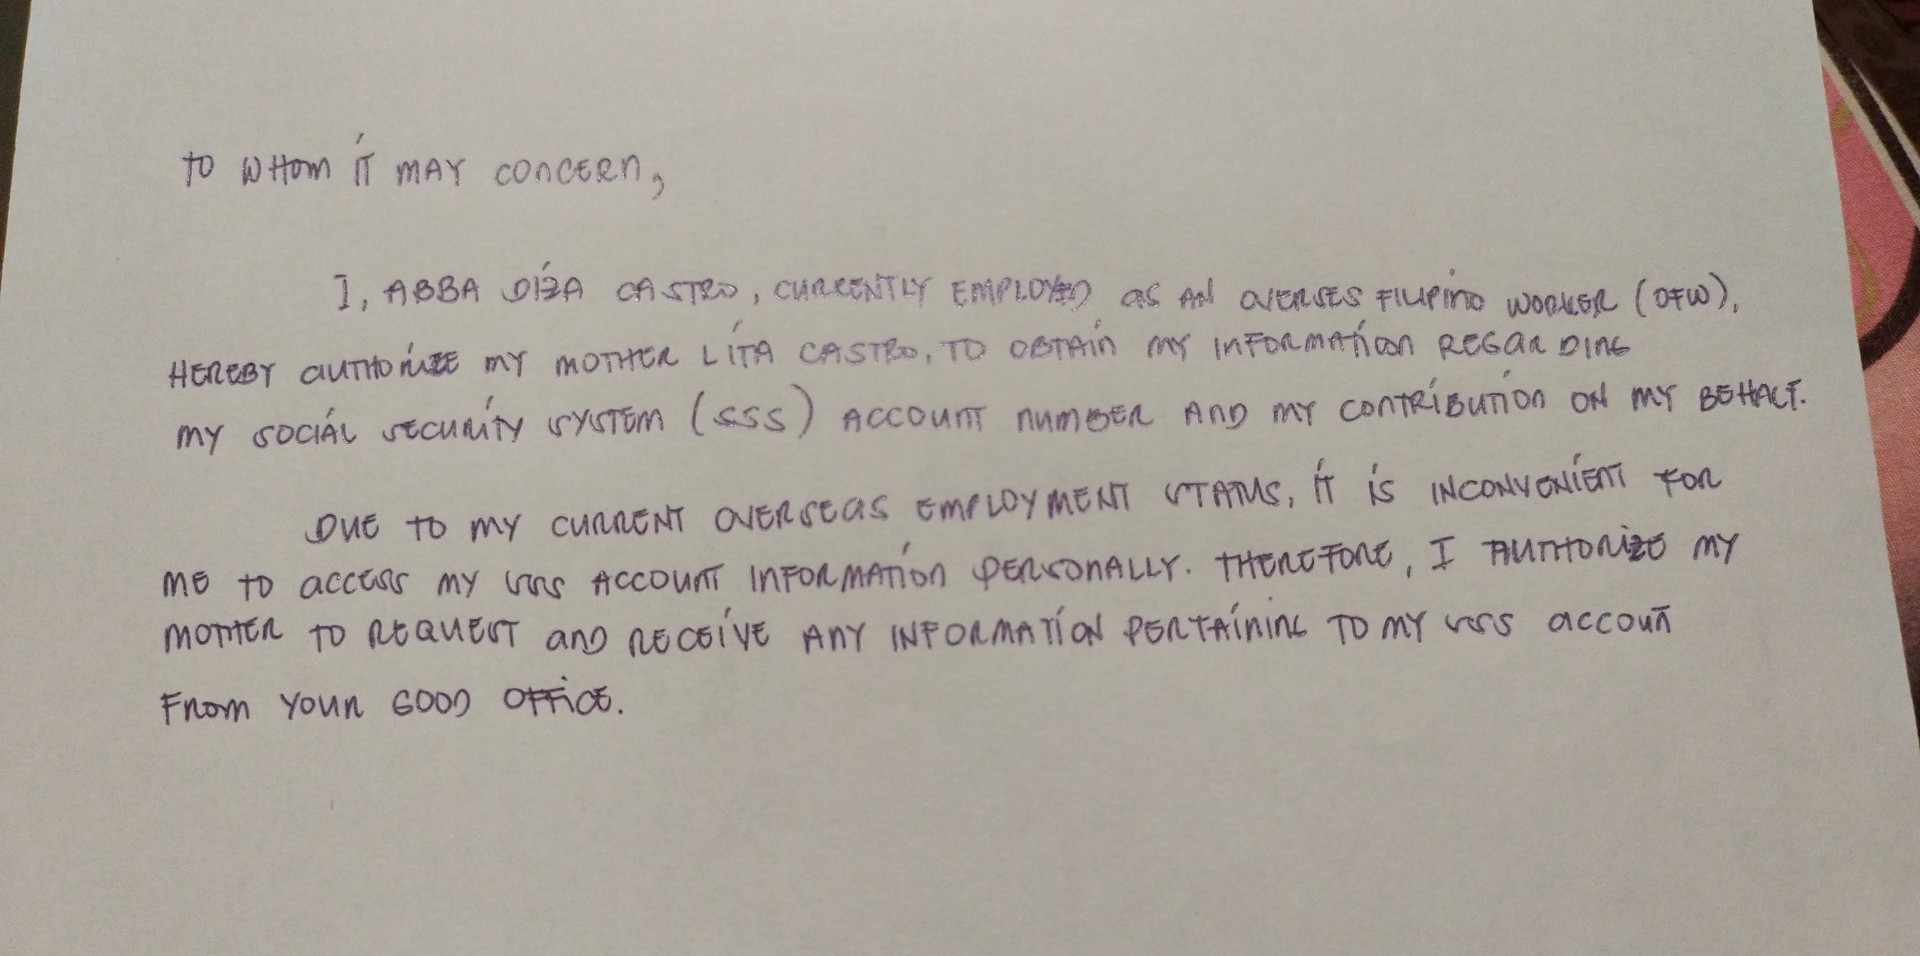 TO WHOM IT MAY CONCERN,
I, ABBA DIZA CASTRO, CURRENTLY EMPLOYED AS AN OVERSES FILIPINO WORKER (OFW),
HEREBY AUTHORIZE MY MOTHER LITA CASTRO, TO OBTAIN MY INFORMATION REGARDING
MY SOCIAL SECURITY SYSTEM (SSS) ACCOUNT NUMBER AND MY CONTRIBUTION ON MY BEHALF.
DUE TO MY CURRENT OVERSEAS EMPLOYMENT STATUS, IT IS INCONVENIENT FOR
ME TO ACCESS MY SSS ACCOUNT INFORMATION PERSONALLY. THEREFORE, I AUTHORIZE MY
MOTHER TO REQUEST AND RECEIVE ANY INFORMATION PERTAINING TO MY SSS ACCOUNT
FROM YOUR GOOD OFFICE.